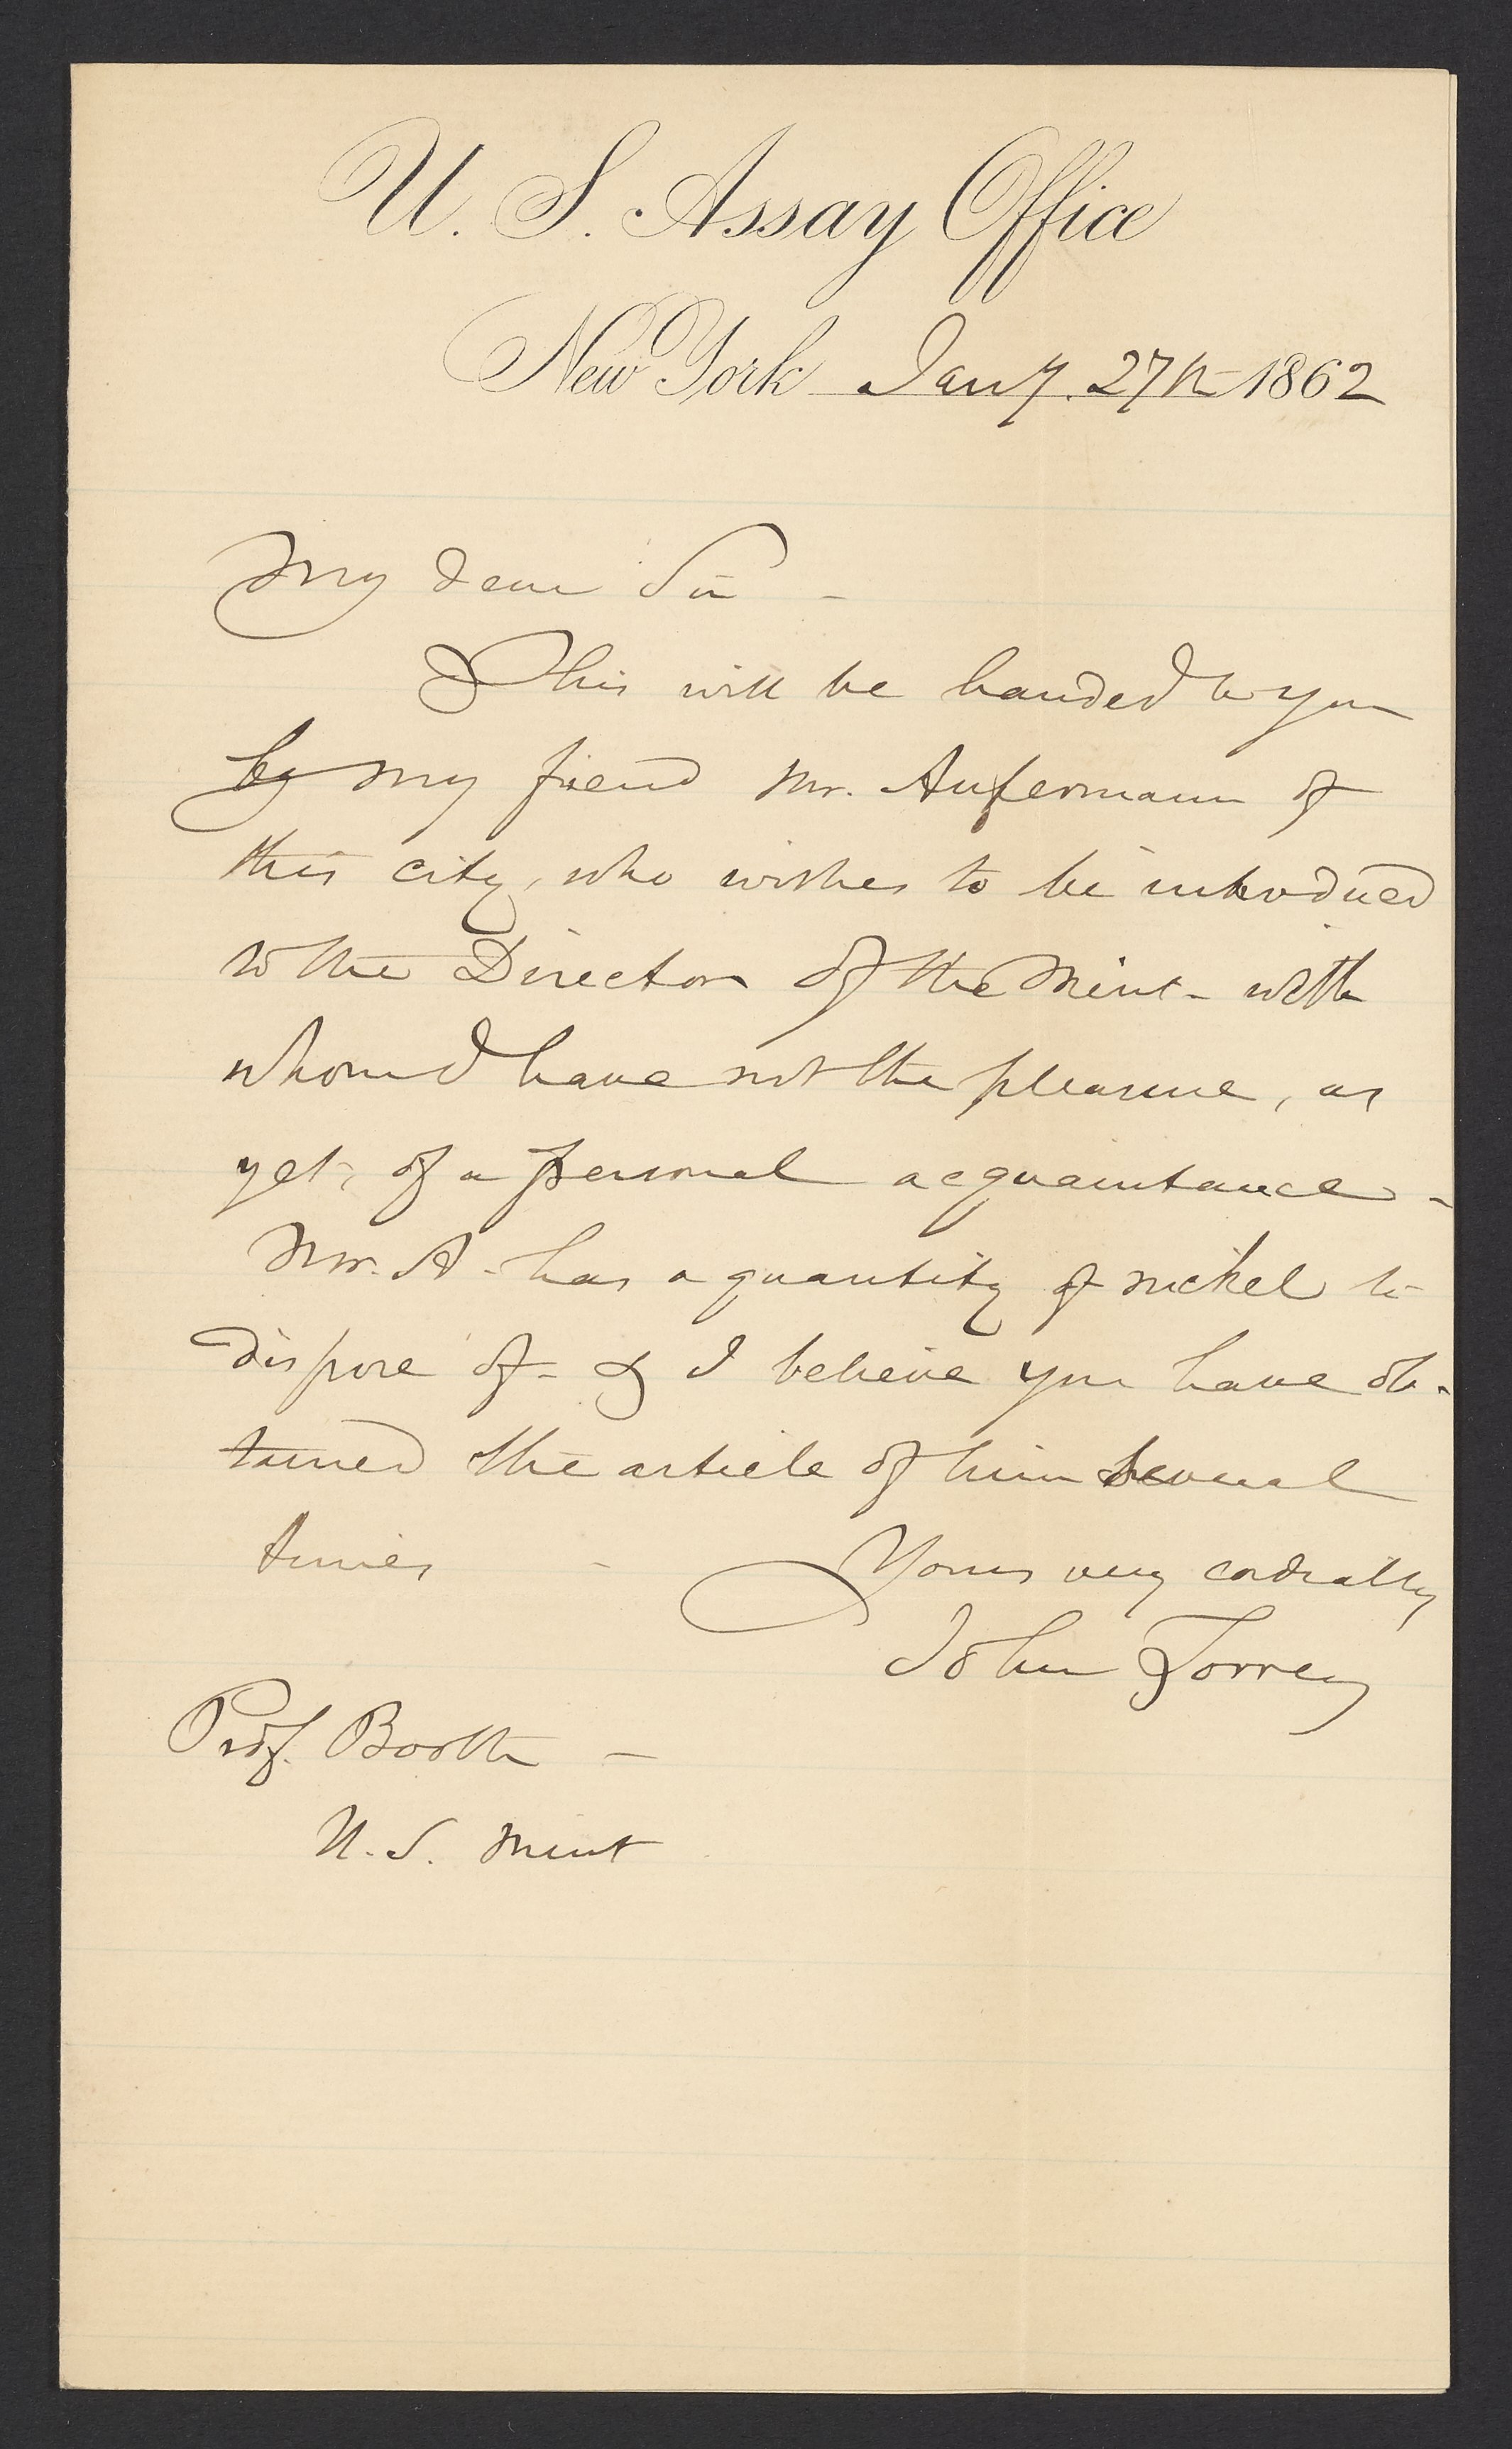 U. S. Assay Office
New York Jany. 27th 1862
My dear Sir -
This will be handed to you
by my friend Mr. Aufermann of
this city, who wishes to be introduced
to the Director of the Mint - with
whom I have not the pleasure, as
yet, of a personal acquaintance -
Mr. A. has a quantity of nickel to
dispose of - & I believe you have ob-
tained the article of him several
times -
Yours very cordially
John Torrey
Prof. Booth -
U. S. Mint